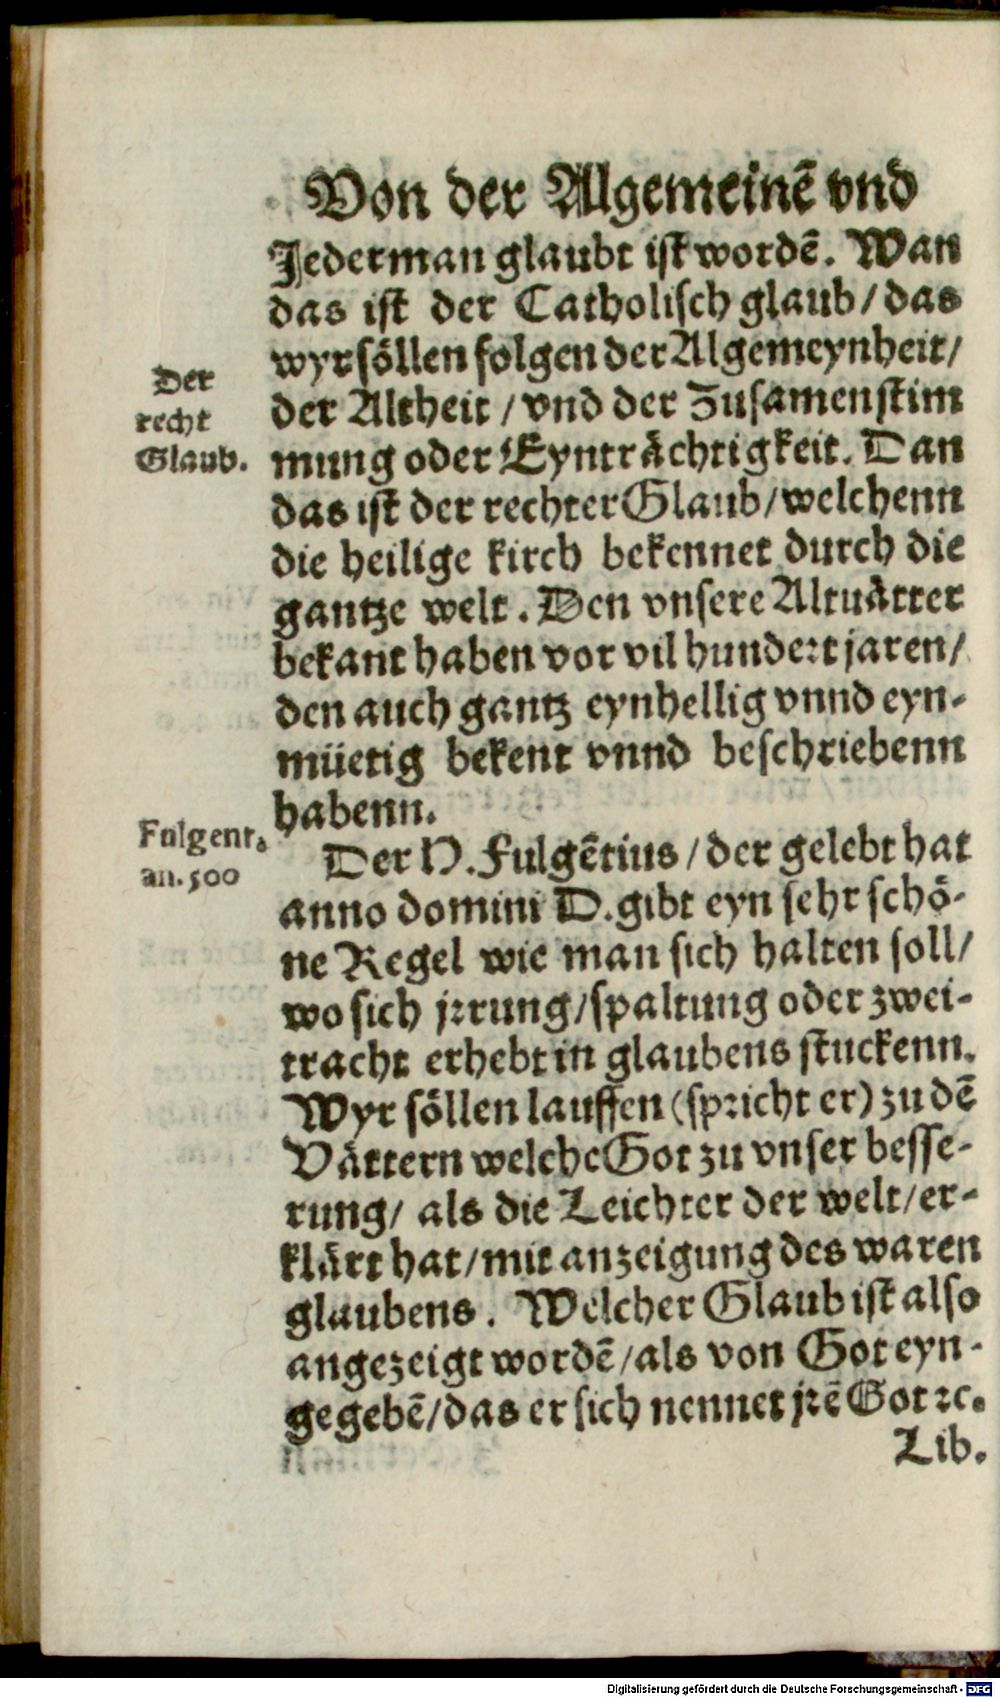 Von der Algemeinẽ vnd
Jederman glaubt ist wordẽ. Wan
das ist der Catholisch glaub/das
wyr söllen folgen der Algemeynheit/
der Altheit / vnd der Zusamenstim
Der
recht
Glaub.
mung oder Eynträchtigkeit. Dan
das ist der rechter Glaub/welchenn
die heilige kirch bekennet durch die
gantze welt. Den vnsere Altuätter
bekant haben vor vil hundert jaren/
den auch gantz eynhellig vnnd eyn-
müetig bekent vnnd beschriebenn
habenn.
Fulgent.
an. 500
Der H. Fulgẽtius/der gelebt hat
anno domini D. gibt eyn sehr schö-
ne Regel wie man sich halten soll/
wo sich jrrung/spaltung oder zwei-
tracht erhebt in glaubens stuckenn.
Wyr söllen lauffen (spricht er) zu dẽ
Vättern welche Got zu vnser besse-
rung/ als die Leichter der welt/er-
klärt hat/mit anzeigung des waren
glaubens. Welcher Glaub ist also
angezeigt wordẽ/als von Got eyn-
gegebẽ/das er sich nennet jrẽ Got ꝛc.
Lib.
Digitalisierung gefördert durch die Deutsche Forschungsgemeinschaft - DFG